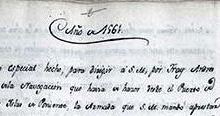 Año de 1561.
especial hecha, para dirigir a S.M., por Fray Andres
la Navegacion que havia de hacer desde el Puerto de
Islas de Poniente la Armada que S.M. mando aprestar